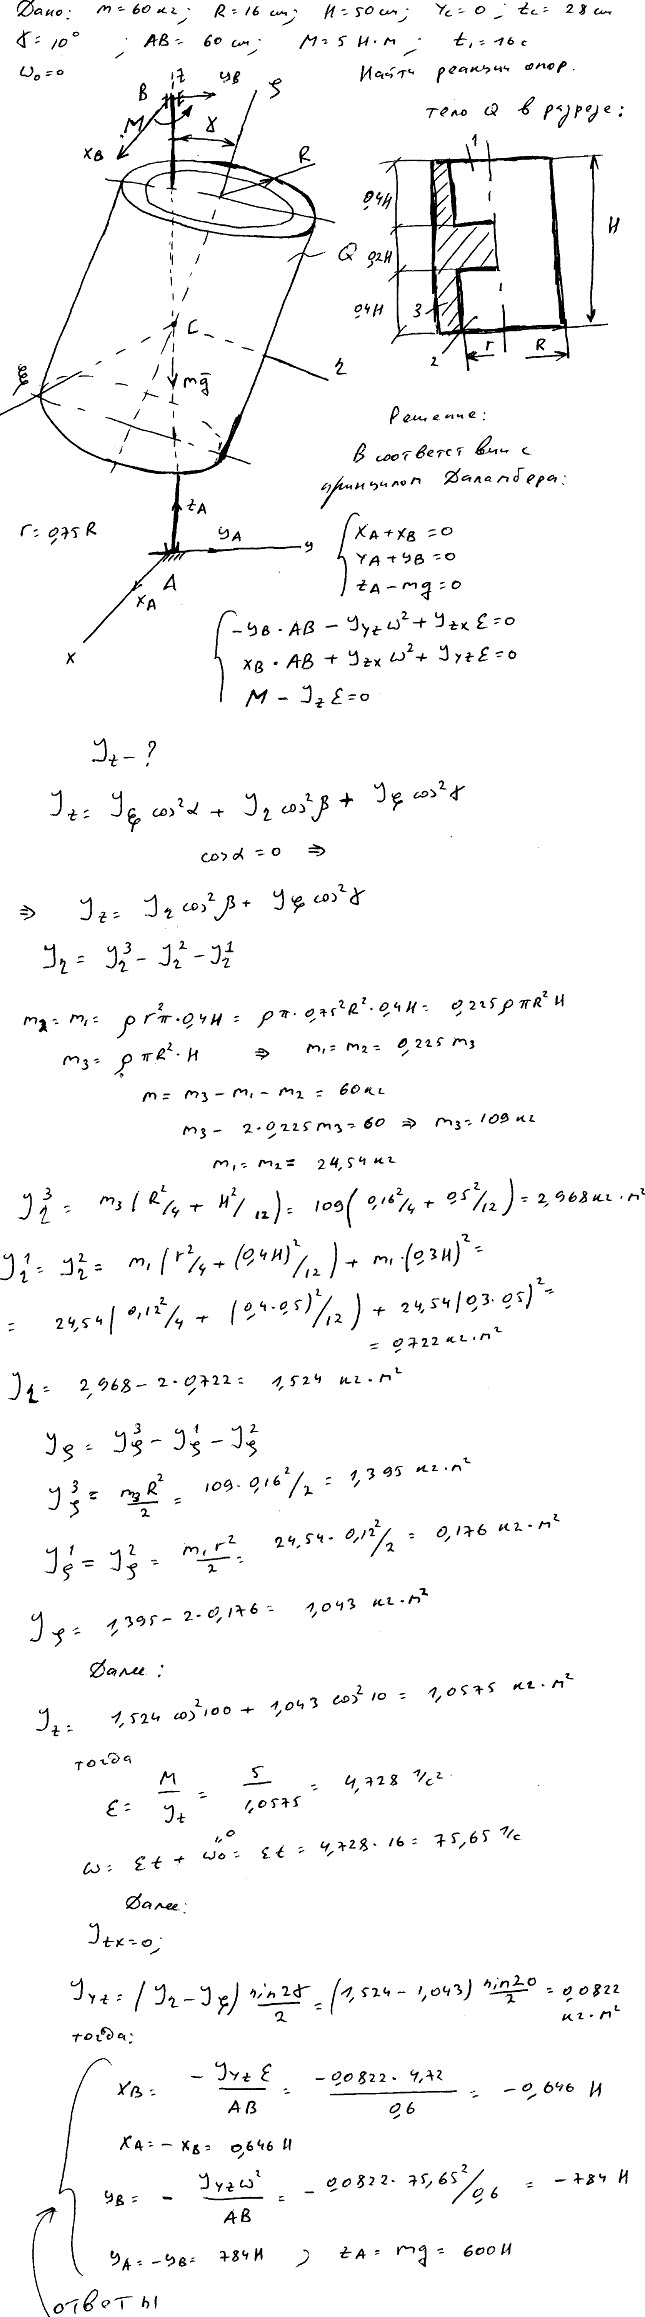 Дано: m=60 кг; R=16 см; H=50 см; Yc=0; zc=28 см
γ=10°; AB=60 см; M=5 Н·м; t₁=16 с
ω₀=0
Найти реакции опор.
тело Q в разрезе:
z
B
yB
ζ
M
γ
xB
R
Q
C
ξ
mḡ
η
zA
r=0,75R
yA
y
A
xA
x
1
0,4H
0,2H
0,4H
H
3
2
r
R
Решение:
В соответствии с
принципом Даламбера:
xA+xB=0
YA+yB=0
zA-mg=0
-yB·AB-Jyzω²+Jzxε=0
xB·AB+Jzxω²+Jyzε=0
M-Jzε=0
Jz-?
Jz=Jξcos²α+Jηcos²β+Jζcos²γ
cosα=0 ⇒
⇒ Jz=Jηcos²β+Jζcos²γ
Jη=Jη³-Jη²-Jη¹
m₂=m₁=ρr²π·0,4H=ρπ·0,75²R²·0,4H=0,225ρπR²H
m₃=ρπR²·H ⇒ m₁=m₂=0,225m₃
m=m₃-m₁-m₂=60кг
m₃-2·0,225m₃=60 ⇒ m₃=109кг
m₁=m₂=24,54кг
Jη³=m₃(R²/4+H²/12)=109(0,16²/4+0,5²/12)=2,968кг·м²
Jη¹=Jη²=m₁(r²/4+(0,4H)²/12)+m₁·(0,3H)²=
=24,54(0,12²/4+(0,4·0,5)²/12)+24,54(0,3·0,5)²=
=0,722кг·м²
Jη=2,968-2·0,722=1,524 кг·м²
Jζ=Jζ³-Jζ¹-Jζ²
Jζ³=m₃R²/2=109·0,16²/2=1,395 кг·м²
Jζ¹=Jζ²=m₁r²/2=24,54·0,12²/2=0,176 кг·м²
Jζ=1,395-2·0,176=1,043 кг·м²
Далее:
Jz=1,524cos²100+1,043cos²10=1,0575 кг·м²
тогда
ε=M/Jz=5/1,0575=4,728 1/с²
ω=εt+ω₀=εt=4,728·16=75,65 1/с
"0
Далее:
Jzx=0;
Jyz=(Jη-Jζ)sin2γ/2=(1,524-1,043)sin20/2=0,0822
кг·м²
тогда:
xB=-Jyzε/AB=-0,0822·4,72/0,6=-0,646 Н
xA=-xB=0,646 Н
yB=-Jyzω²/AB=-0,0822·75,65²/0,6=-784 Н
yA=-yB=784Н; zA=mg=600Н
ответы